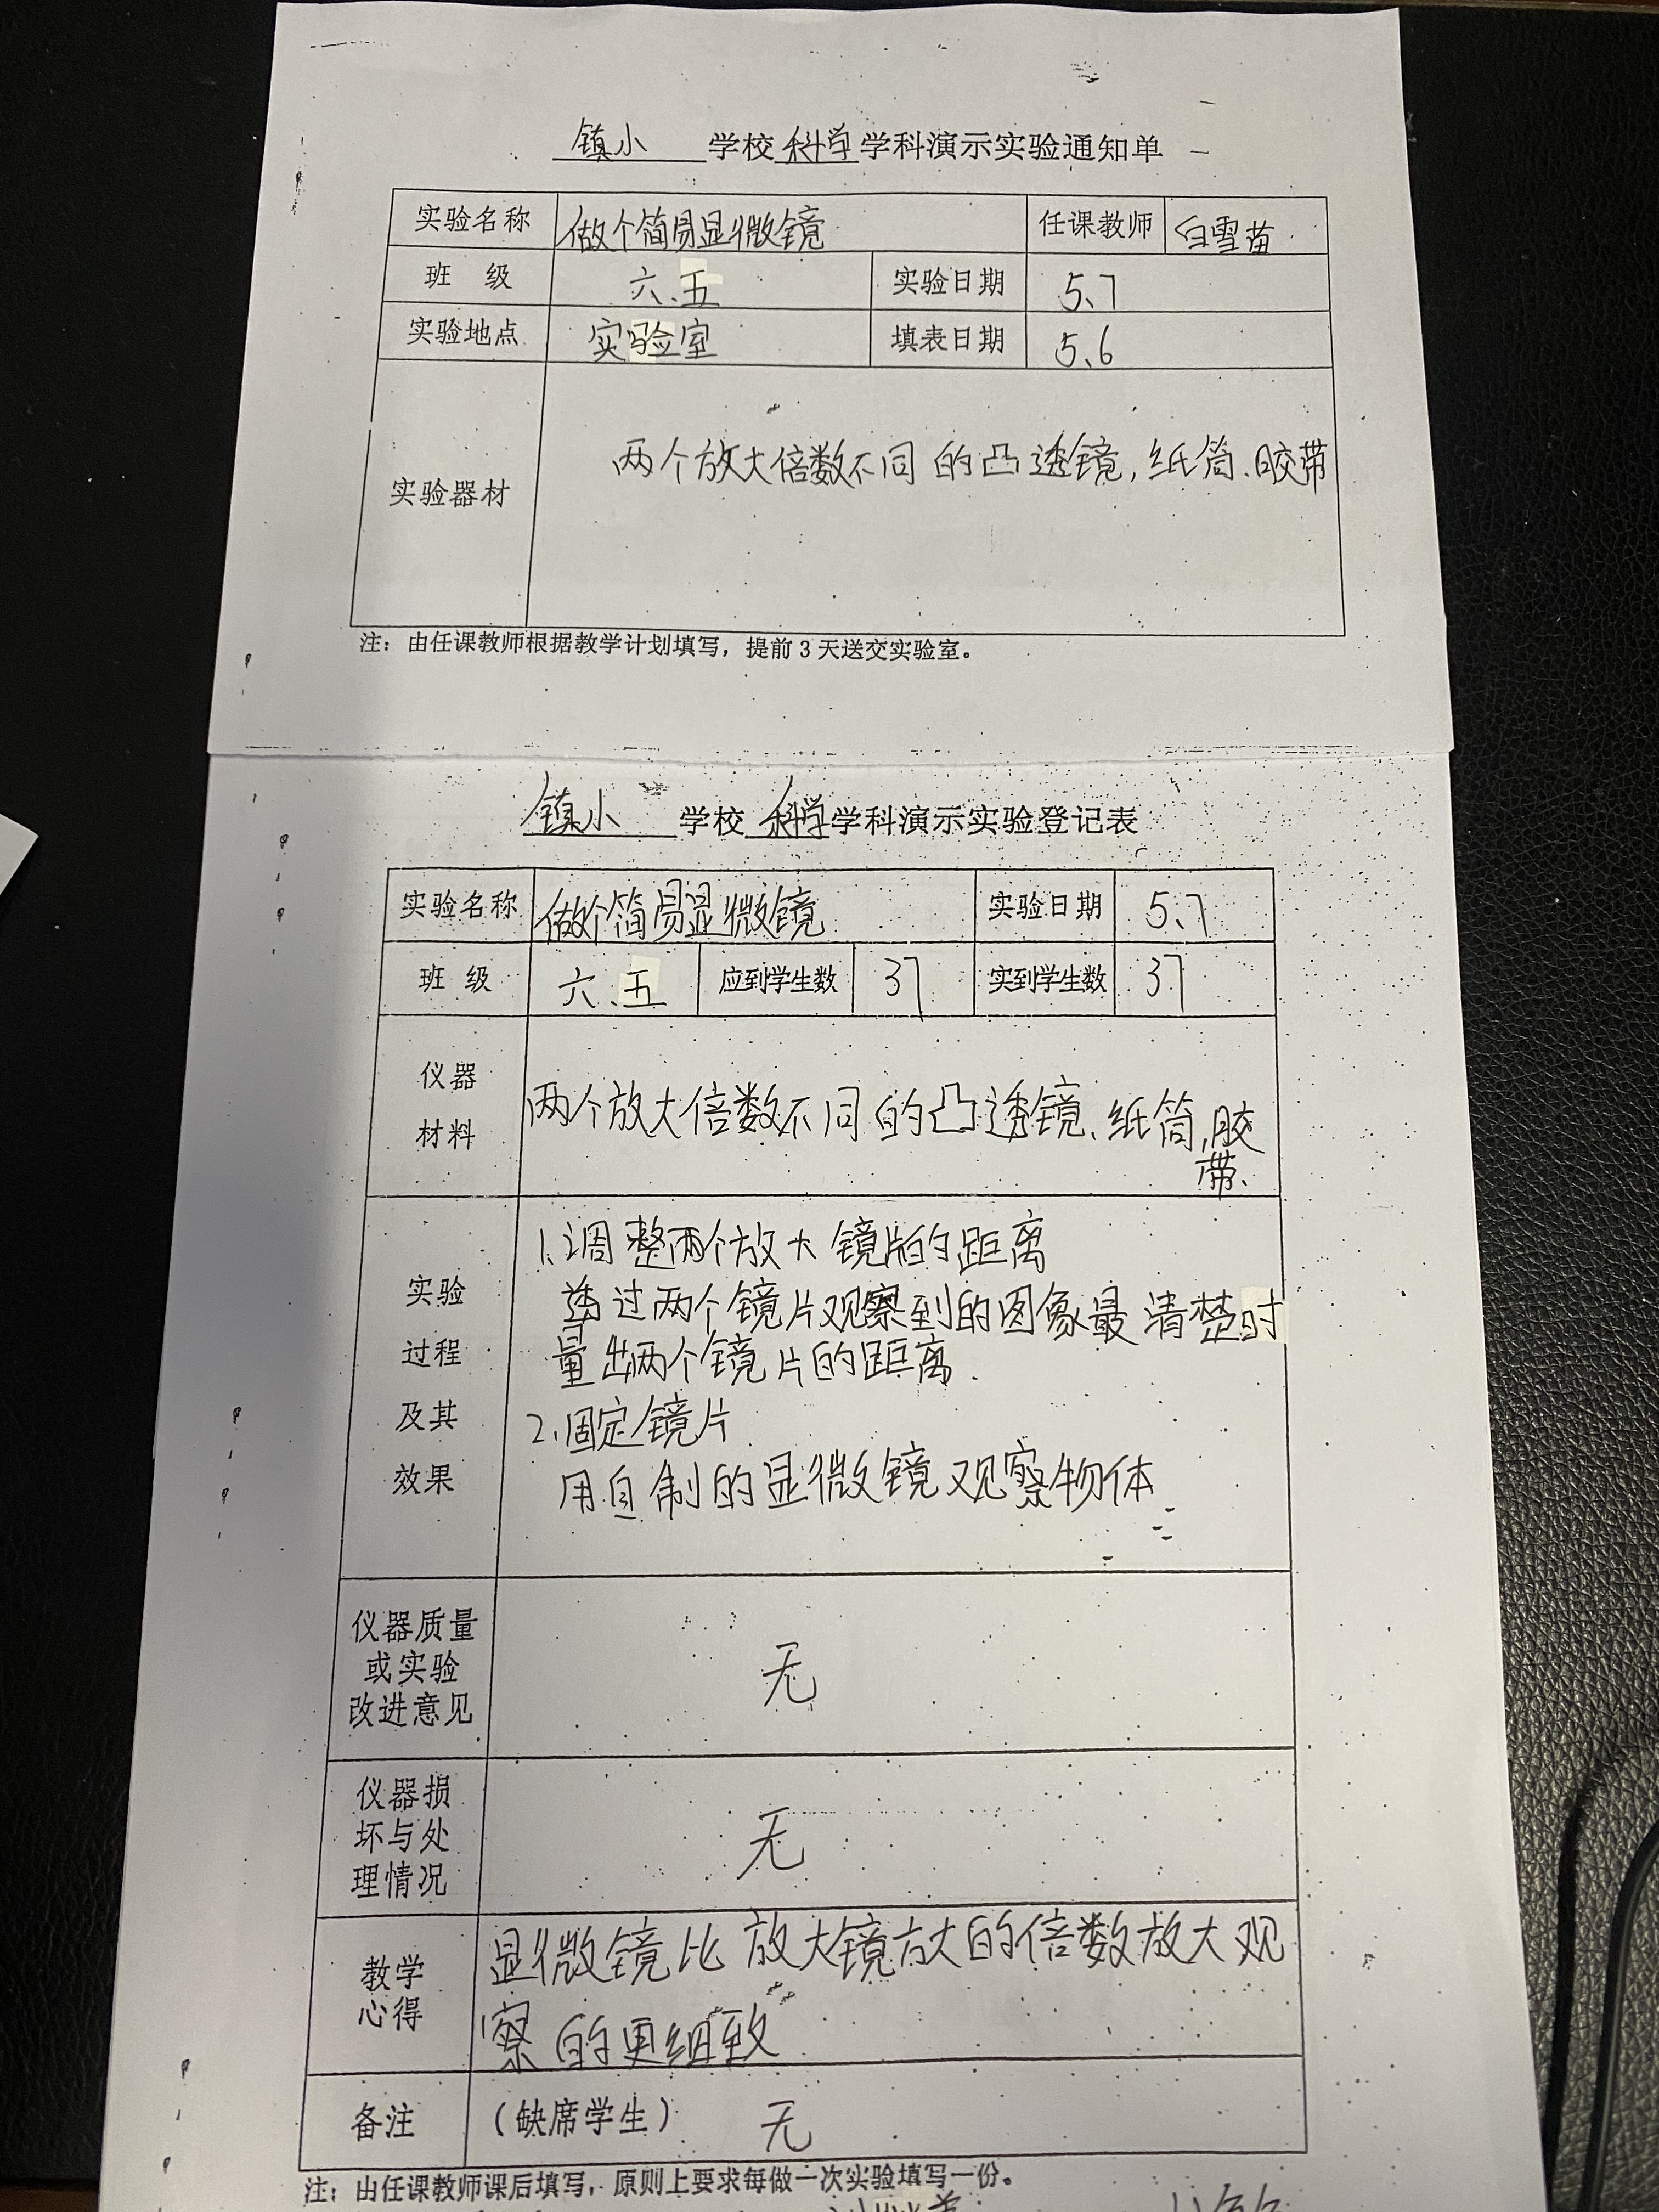 镇小 学校 科学 学科演示实验通知单
实验名称 做个简易显微镜 任课教师 白雪苗
班 级 六、五 实验日期 5、7
实验地点 实验室 填表日期 5、6
实验器材 两个放大倍数不同的凸透镜,纸筒、胶带
注：由任课教师根据教学计划填写，提前3天送交实验室。
镇小 学校 科学 学科演示实验登记表
实验名称 做个简易显微镜 实验日期 5、7
班 级 六、五 应到学生数 37 实到学生数 37
仪器
材料
两个放大倍数不同的凸透镜、纸筒,胶
带、
实验
过程
及其
效果
1、调整两个放大镜片的距离
过两个镜片观察到的图象最清楚时
量出两个镜片的距离.
2、固定镜片
用自制的显微镜观察物体
仪器质量
或实验
改进意见
无
仪器损
坏与处
理情况
无
教学
心得
显微镜比放大镜放大的倍数放大观
察的更细致
备注 （缺席学生） 无
注：由任课教师课后填写，原则上要求每做一次实验填写一份。